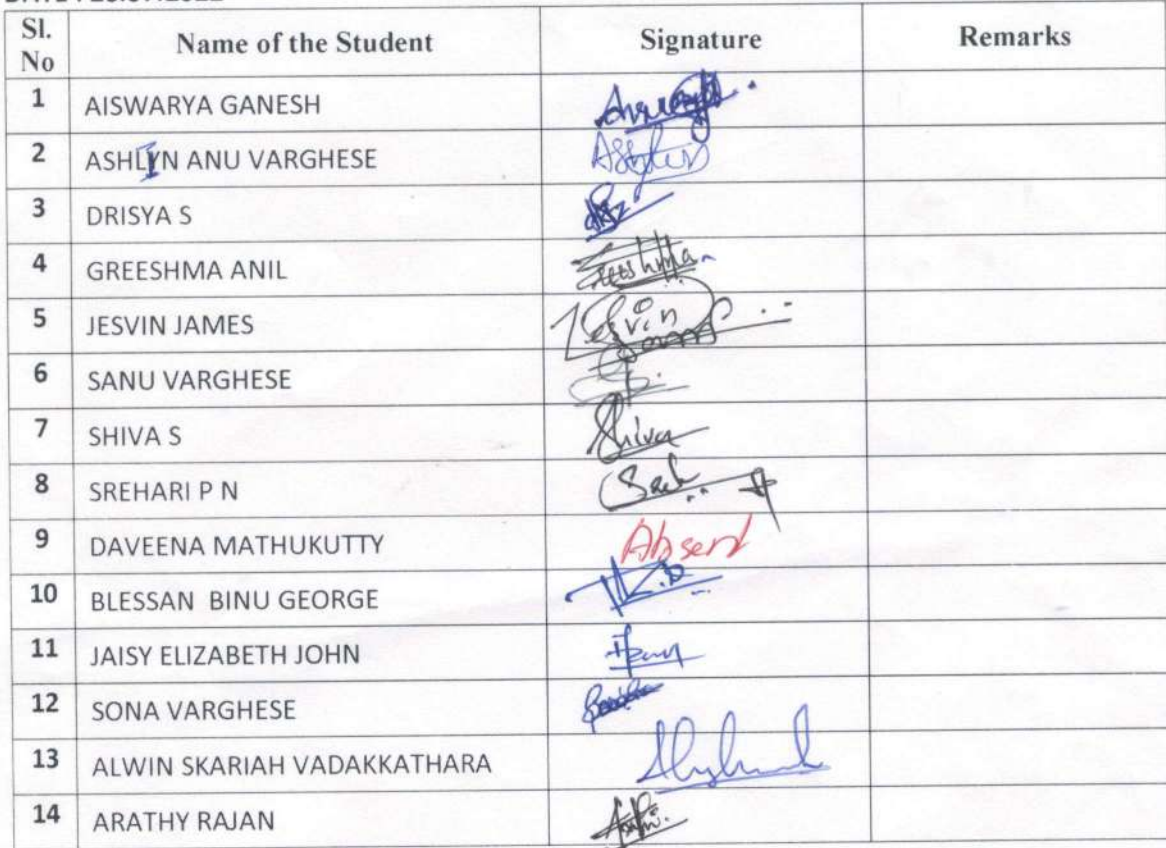 Sl. No Name of the Student Signature Remarks
1 AISWARYA GANESH
2 ASHLIN ANU VARGHESE Ashlin
3 DRISYA S
4 GREESHMA ANIL Greeshma
5 JESVIN JAMES Jesvin James
6 SANU VARGHESE
7 SHIVA S Shiva
8 SREHARI P N
9 DAVEENA MATHUKUTTY Absent
10 BLESSAN BINU GEORGE
11 JAISY ELIZABETH JOHN
12 SONA VARGHESE
13 ALWIN SKARIAH VADAKKATHARA
14 ARATHY RAJAN